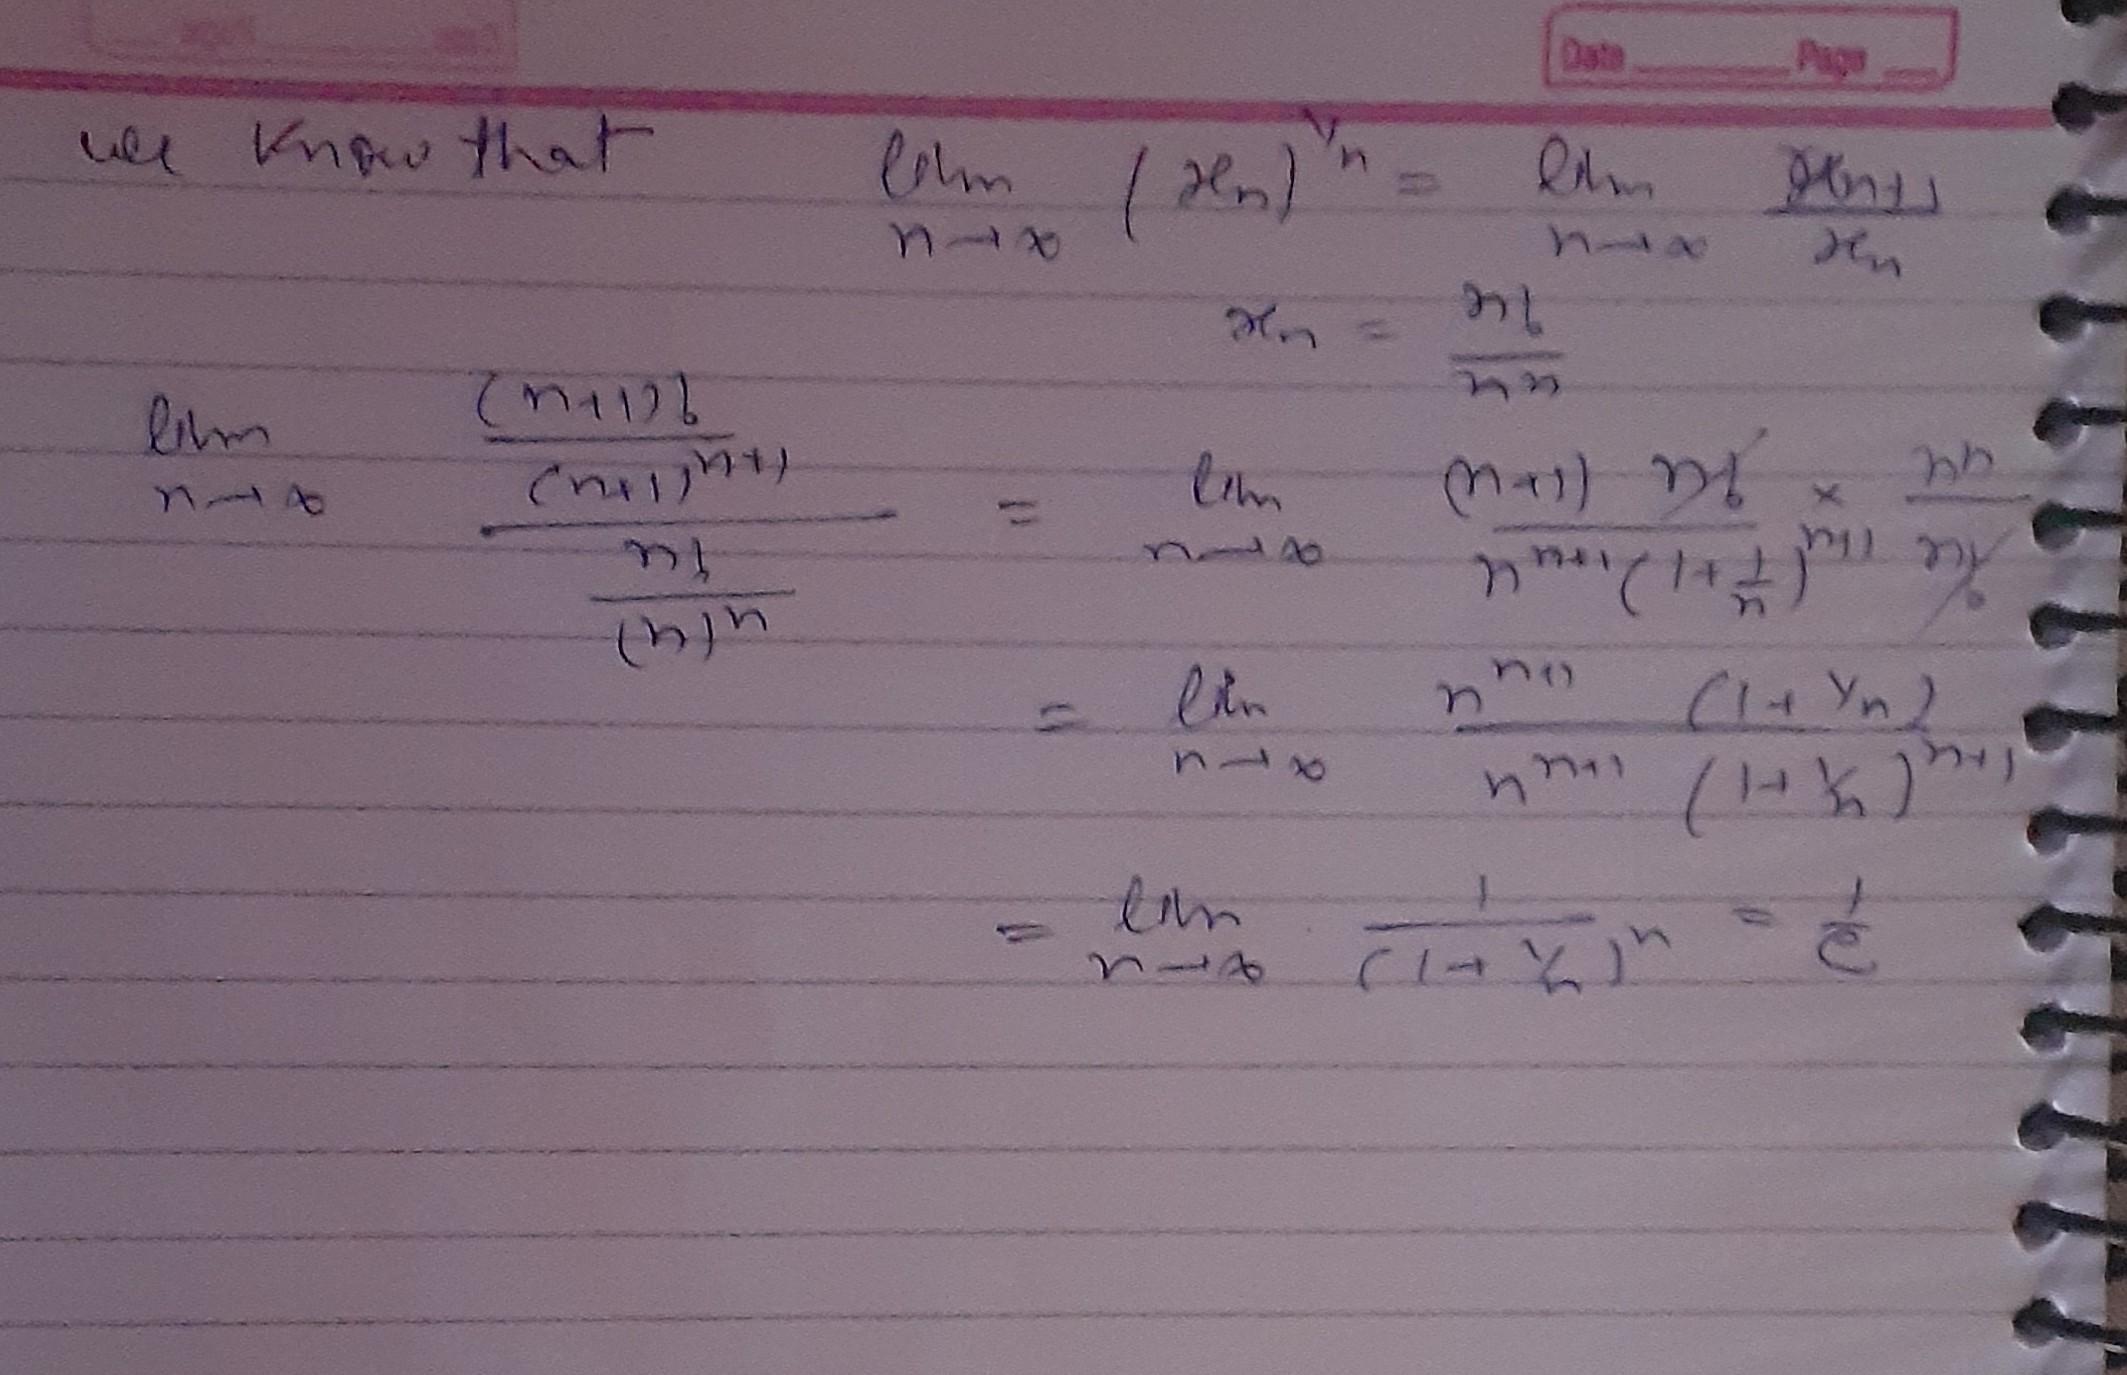 Date Page
we know that lim n→∞ (xn)^1/n = lim n→∞ xn+1/xn
xn = n!/n^n
lim n→∞ ((n+1)!/(n+1)^n+1)/(n!/(n)^n) = lim n→∞ (n+1) n!/(n^n+1 (1+1/n)^n+1) × n^n/n!
= lim n→∞ n^n+1 (1+1/n)/(n^n+1 (1+1/n)^n+1)
= lim n→∞ 1/(1+1/n)^n = 1/e